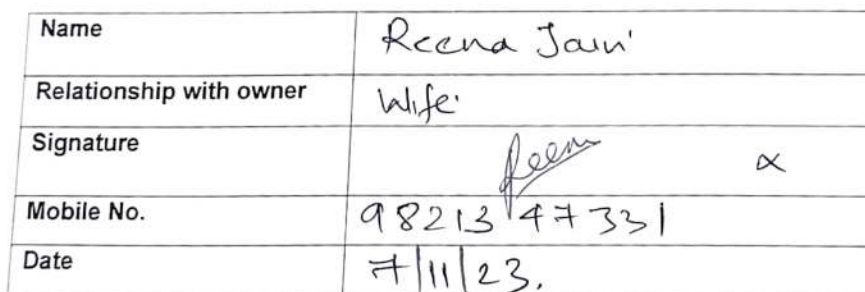 Name Reena Jain
Relationship with owner Wife
Signature Reena x
Mobile No. 98213 47331
Date 7/11/23.